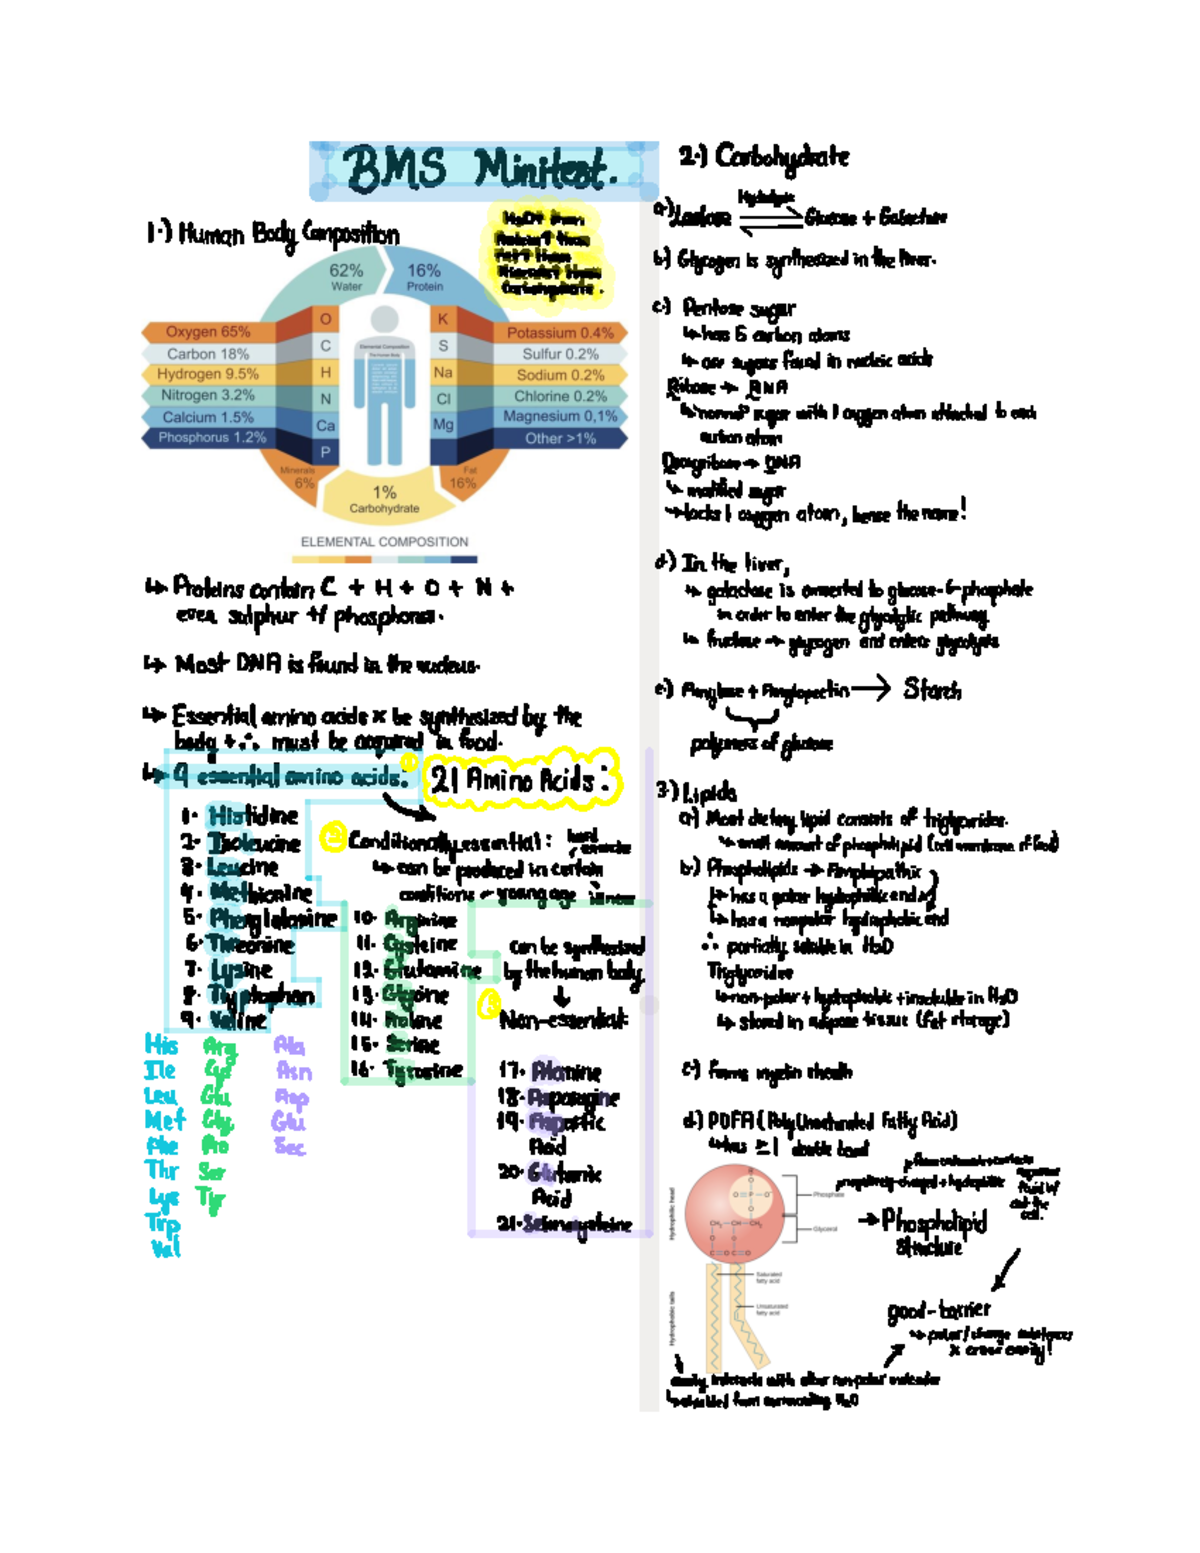 BMS Minitest.
1.) Human Body Composition
H2O↑ than
Protein↑ than
Fat↑ than
Mineral↑ than
Carbohydrate.
62%
Water
16%
Protein
Oxygen 65%
Carbon 18%
Hydrogen 9.5%
Nitrogen 3.2%
Calcium 1.5%
Phosphorus 1.2%
O
C
H
N
Ca
P
Elemental Composition
The Human Body
K
S
Na
Cl
Mg
Potassium 0.4%
Sulfur 0.2%
Sodium 0.2%
Chlorine 0.2%
Magnesium 0,1%
Other >1%
Minerals
6%
Fat
16%
1%
Carbohydrate
ELEMENTAL COMPOSITION
↳ Proteins contain C + H + O + N +
even sulphur +/ phosphorus.
↳ Most DNA is found in the nucleus.
↳ Essential amino acids × be synthesized by the
body + ∴ must be acquired in food.
↳ 9 essential amino acids:
1. Histidine
2. Isoleucine
3. Leucine
4. Methionine
5. Phenylalanine
6. Threonine
7. Lysine
8. Tryptophan
9. Valine
21 Amino Acids:
② Conditionally essential:
↳ can be produced in certain
conditions - young age
10. Arginine
11. Cysteine
12. Glutamine
13. Glycine
14. Proline
15. Serine
16. Tyrosine
can be synthesized
by the human body
↓
Non-essential:
17. Alanine
18. Asparagine
19. Aspartic
Acid
20. Glutamic
Acid
21. Selenocysteine
His Arg Ala
Ile Cys Asn
Leu Glu Asp
Met Gly Glu
Phe Pro Sec
Thr Ser
Lys Tyr
Trp
Val
2.) Carbohydrate
Hydrolysis
a) Lactose Glucose + Galactose
b) Glycogen is synthesized in the liver.
c) Pentose sugar
↳ has 5 carbon atoms
↳ are sugars found in nucleic acids
Ribose → RNA
↳ "normal" sugar with 1 oxygen atom attached to each
carbon atom
Deoxyribose → DNA
↳ modified sugar
↳ lacks 1 oxygen atom, hence the name!
d) In the liver,
↳ galactose is converted to glucose-6-phosphate
in order to enter the glycolytic pathway
↳ fructose → glycogen and enters glycolysis
e) Amylose + Amylopectin → Starch
polymers of glucose
3.) Lipids
a) Most dietary lipid consists of triglycerides.
↳ small amount of phospholipid (cell membrane of food)
b) Phospholipids → Amphipathic
↳ has a polar hydrophilic end
↳ has a nonpolar hydrophobic end
∴ partially soluble in H2O
Triglycerides
↳ non-polar + hydrophobic + insoluble in H2O
↳ stored in adipose tissue (fat storage)
c) forms myelin sheath
d) PUFA (Poly Unsaturated Fatty Acid)
↳ has ≥ 1 double bond
negatively-charged + hydrophilic
fluid of
cell.
Hydrophilic head
Phosphate
Glycerol
Saturated
fatty acid
Unsaturated
fatty acid
Hydrophobic tails
→ Phospholipid
Structure
good-barrier
↳ polar/charge substances
× cross easily!
easily interacts with other non-polar molecules
↳ shielded from surrounding H2O